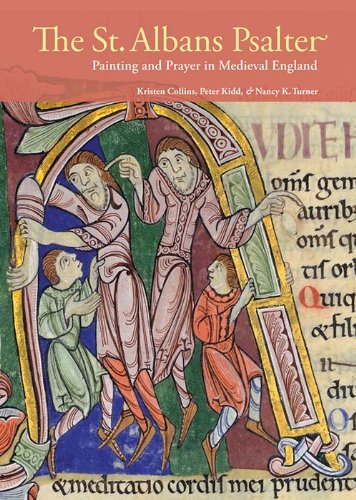 The St. Albans Psalter
Painting and Prayer in Medieval England
Kristen Collins, Peter Kidd, & Nancy K. Turner
UDITE H
om̅s gen
aurib;
om̅s q
tis or
Quiq
& fili
& meditatio cordis mei prudent